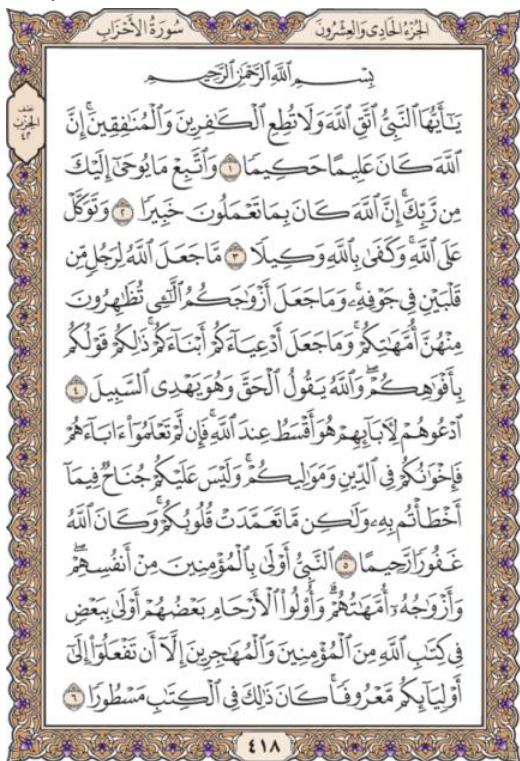 الجُزْءُ الحَادِى وَالعِشْرُونَ
سُورَةُ الأَحْزَابِ
نصف
الحزب
٤٢
بِسْمِ ٱللَّهِ ٱلرَّحْمَٰنِ ٱلرَّحِيمِ
يَـٰٓأَيُّهَا ٱلنَّبِىُّ ٱتَّقِ ٱللَّهَ وَلَا تُطِعِ ٱلْكَـٰفِرِينَ وَٱلْمُنَـٰفِقِينَۗ إِنَّ
ٱللَّهَ كَانَ عَلِيمًا حَكِيمًا ١ وَٱتَّبِعْ مَا يُوحَىٰٓ إِلَيْكَ
مِن رَّبِّكَۚ إِنَّ ٱللَّهَ كَانَ بِمَا تَعْمَلُونَ خَبِيرًا ٢ وَتَوَكَّلْ
عَلَى ٱللَّهِۚ وَكَفَىٰ بِٱللَّهِ وَكِيلًا ٣ مَّا جَعَلَ ٱللَّهُ لِرَجُلٍ مِّن
قَلْبَيْنِ فِى جَوْفِهِۦۚ وَمَا جَعَلَ أَزْوَٰجَكُمُ ٱلَّـٰٓـِٔى تُظَـٰهِرُونَ
مِنْهُنَّ أُمَّهَـٰتِكُمْۚ وَمَا جَعَلَ أَدْعِيَآءَكُمْ أَبْنَآءَكُمْۚ ذَٰلِكُمْ قَوْلُكُم
بِأَفْوَٰهِكُمْۖ وَٱللَّهُ يَقُولُ ٱلْحَقَّ وَهُوَ يَهْدِى ٱلسَّبِيلَ ٤
ٱدْعُوهُمْ لِـَٔابَآئِهِمْ هُوَ أَقْسَطُ عِندَ ٱللَّهِۚ فَإِن لَّمْ تَعْلَمُوٓا۟ ءَابَآءَهُمْ
فَإِخْوَٰنُكُمْ فِى ٱلدِّينِ وَمَوَٰلِيكُمْۚ وَلَيْسَ عَلَيْكُمْ جُنَاحٌ فِيمَآ
أَخْطَأْتُم بِهِۦ وَلَـٰكِن مَّا تَعَمَّدَتْ قُلُوبُكُمْۚ وَكَانَ ٱللَّهُ
غَفُورًا رَّحِيمًا ٥ ٱلنَّبِىُّ أَوْلَىٰ بِٱلْمُؤْمِنِينَ مِنْ أَنفُسِهِمْۖ
وَأَزْوَٰجُهُۥٓ أُمَّهَـٰتُهُمْۗ وَأُو۟لُوا۟ ٱلْأَرْحَامِ بَعْضُهُمْ أَوْلَىٰ بِبَعْضٍ
فِى كِتَـٰبِ ٱللَّهِ مِنَ ٱلْمُؤْمِنِينَ وَٱلْمُهَـٰجِرِينَ إِلَّآ أَن تَفْعَلُوٓا۟ إِلَىٰٓ
أَوْلِيَآئِكُم مَّعْرُوفًاۚ كَانَ ذَٰلِكَ فِى ٱلْكِتَـٰبِ مَسْطُورًا ٦
٤١٨